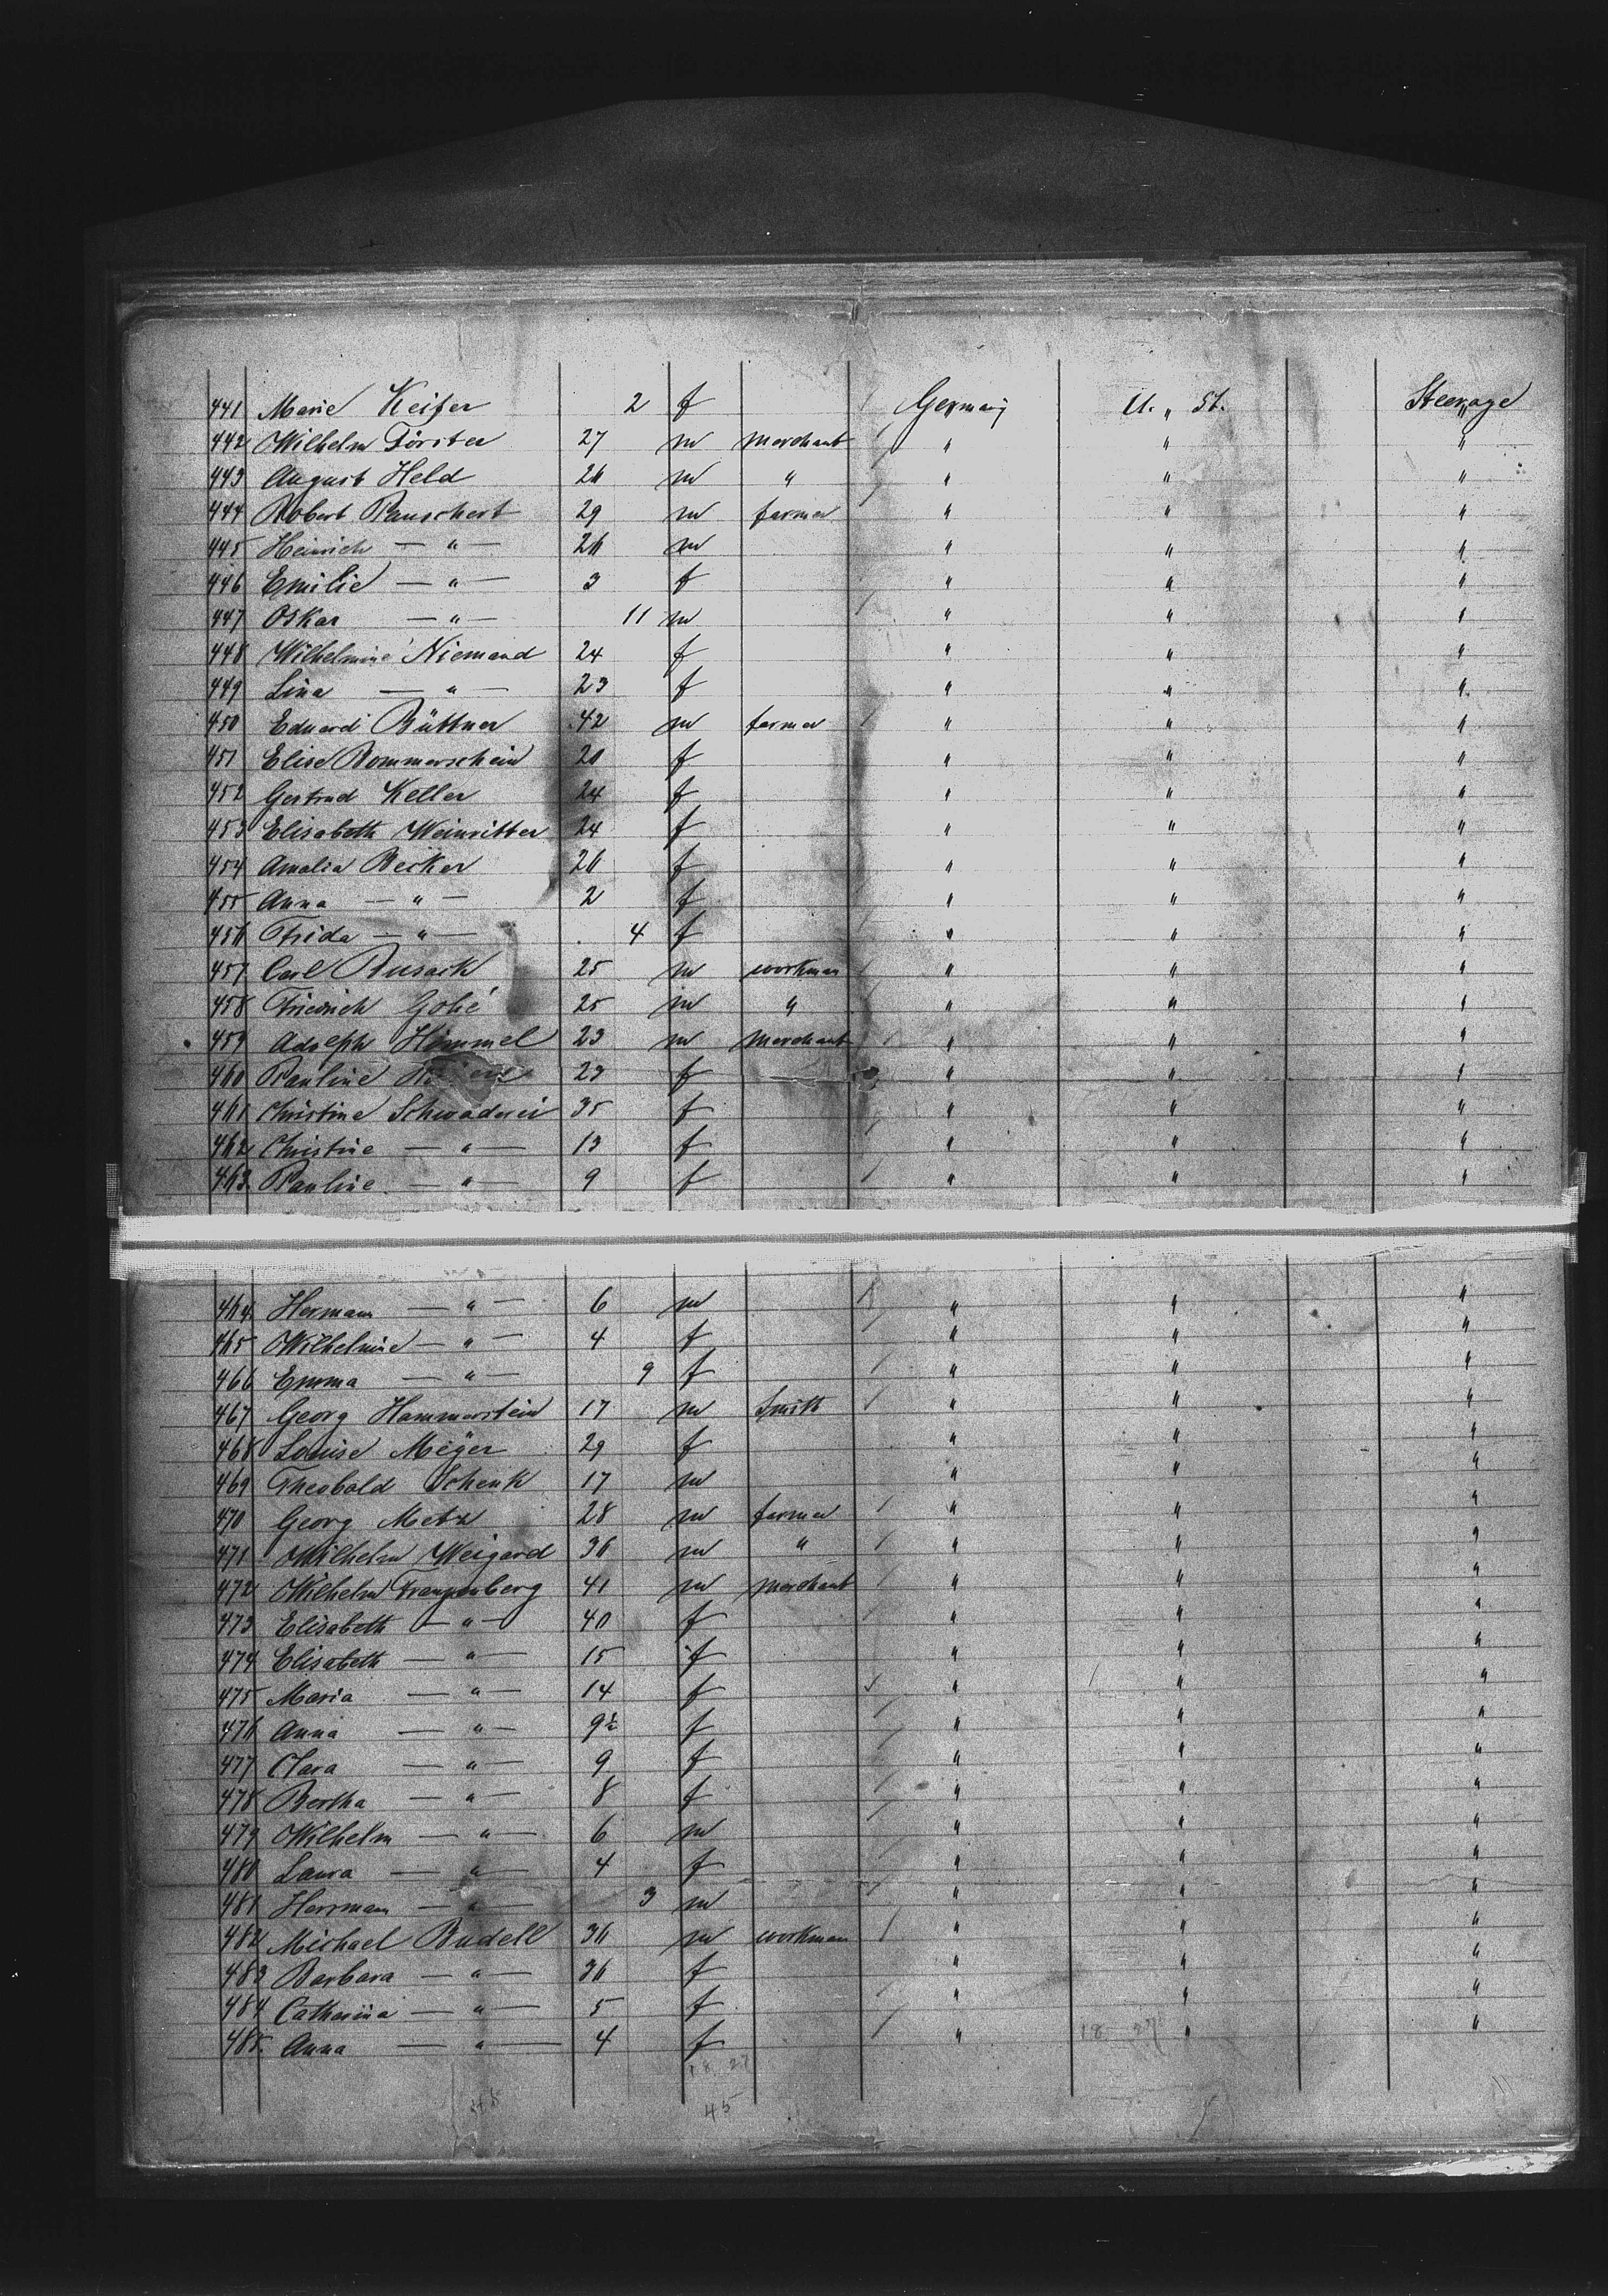 441 Marie Keifer 2 f Germany U. „ St. Steerage
442 Wilhelm Förster 27 m merchant " " "
443 August Held 26 m " " " "
444 Robert Rauschert 29 m farmer " " "
445 Heinrich — " — 26 m " " "
446 Emilie — " — 3 f " " "
447 Oskar — " — 11 m " " "
448 Wilhelmine Niemand 24 f " " "
449 Lina — " — 23 f " " "
450 Eduard Büttner 42 m farmer " " "
451 Elise Bommerschein 20 f " " "
452 Gertrud Keller 24 f " " "
453 Elisabeth Weinritter 24 f " " "
454 Amalia Becker 26 f " " "
455 Anna — " — 2 f " " "
456 Frida — " — 4 f " " "
457 Carl Busack 25 m workman " " "
458 Friedrich Gohé 25 m " " " "
459 Adolph Himmel 23 m merchant " " "
460 Pauline 23 f " " "
461 Christine Schwaderei 35 f " " "
462 Christine — " — 13 f " " "
463 Pauline — " — 9 f " " "
464 Hermann — " — 6 m " " "
465 Wilhelmine — " — 4 f " " "
466 Emma — " — 9 f " " "
467 Georg Hammerstein 17 m Smith " " "
468 Louise Meÿer 29 f " " "
469 Theobald Schenk 17 m " " "
470 Georg Metz 28 m farmer " " "
471 Wilhelm Weigard 36 m " " " "
472 Wilhelm 41 m merchant " " "
473 Elisabeth — " — 40 f " " "
474 Elisabeth — " — 15 f " " "
475 Maria — " — 14 f " " "
476 Anna — " — 9½ f " " "
477 Clara — " — 9 f " " "
478 Bertha — " — 8 f " " "
479 Wilhelm — " — 6 m " " "
480 Laura — " — 4 f " " "
481 Herrmann — " — 3 m " " "
482 Michael Budell 36 m workman " " "
483 Barbara — " — 36 f " " "
484 Catharina — " — 5 f " " "
485 Anna — " — 4 f " 18 27 " "
18 27
45